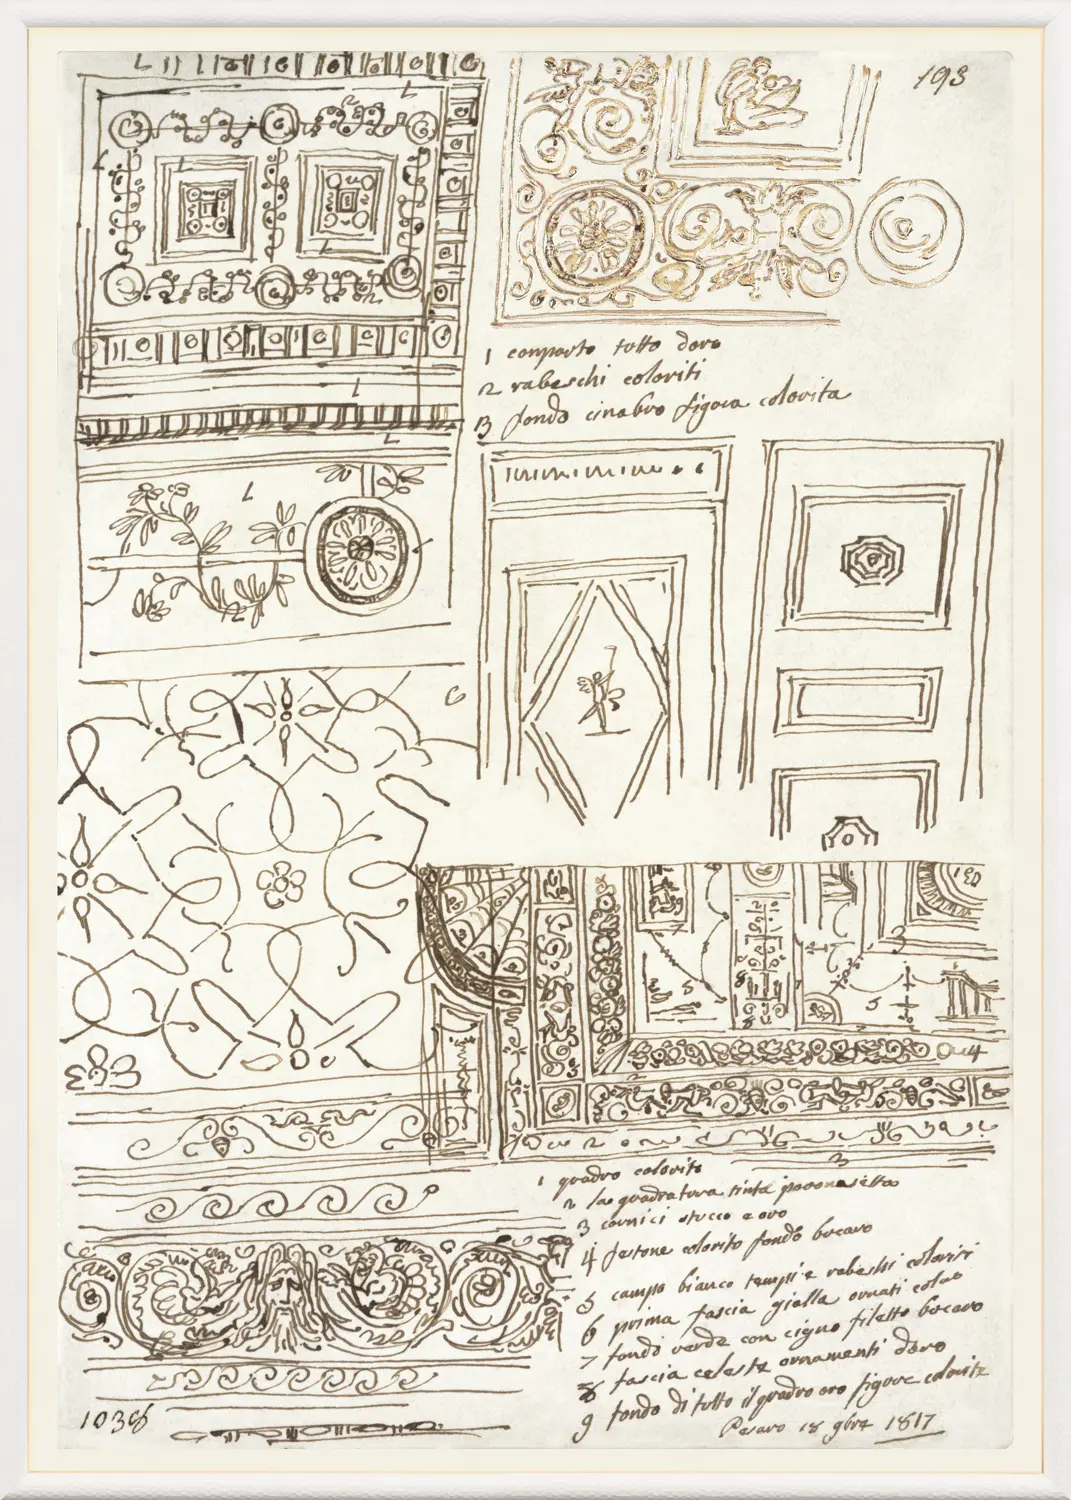 193
1 comparto tutto doro
2 rabeschi coloriti
3 fondo cinabro figura colorita
1 quadro colorito
2 la quadratura tinta paonasetta
3 cornici stucco e oro
4 festone colorito fondo bucaro
5 campo bianco tempi e rabeschi coloriti
6 prima fascia gialla ornati
7 fondi verde con cigno filetto bucaro
8 fascia celeste ornamenti doro
9 fondo di tutto il quadro oro figure colorite
Pesaro 18 9bre 1817